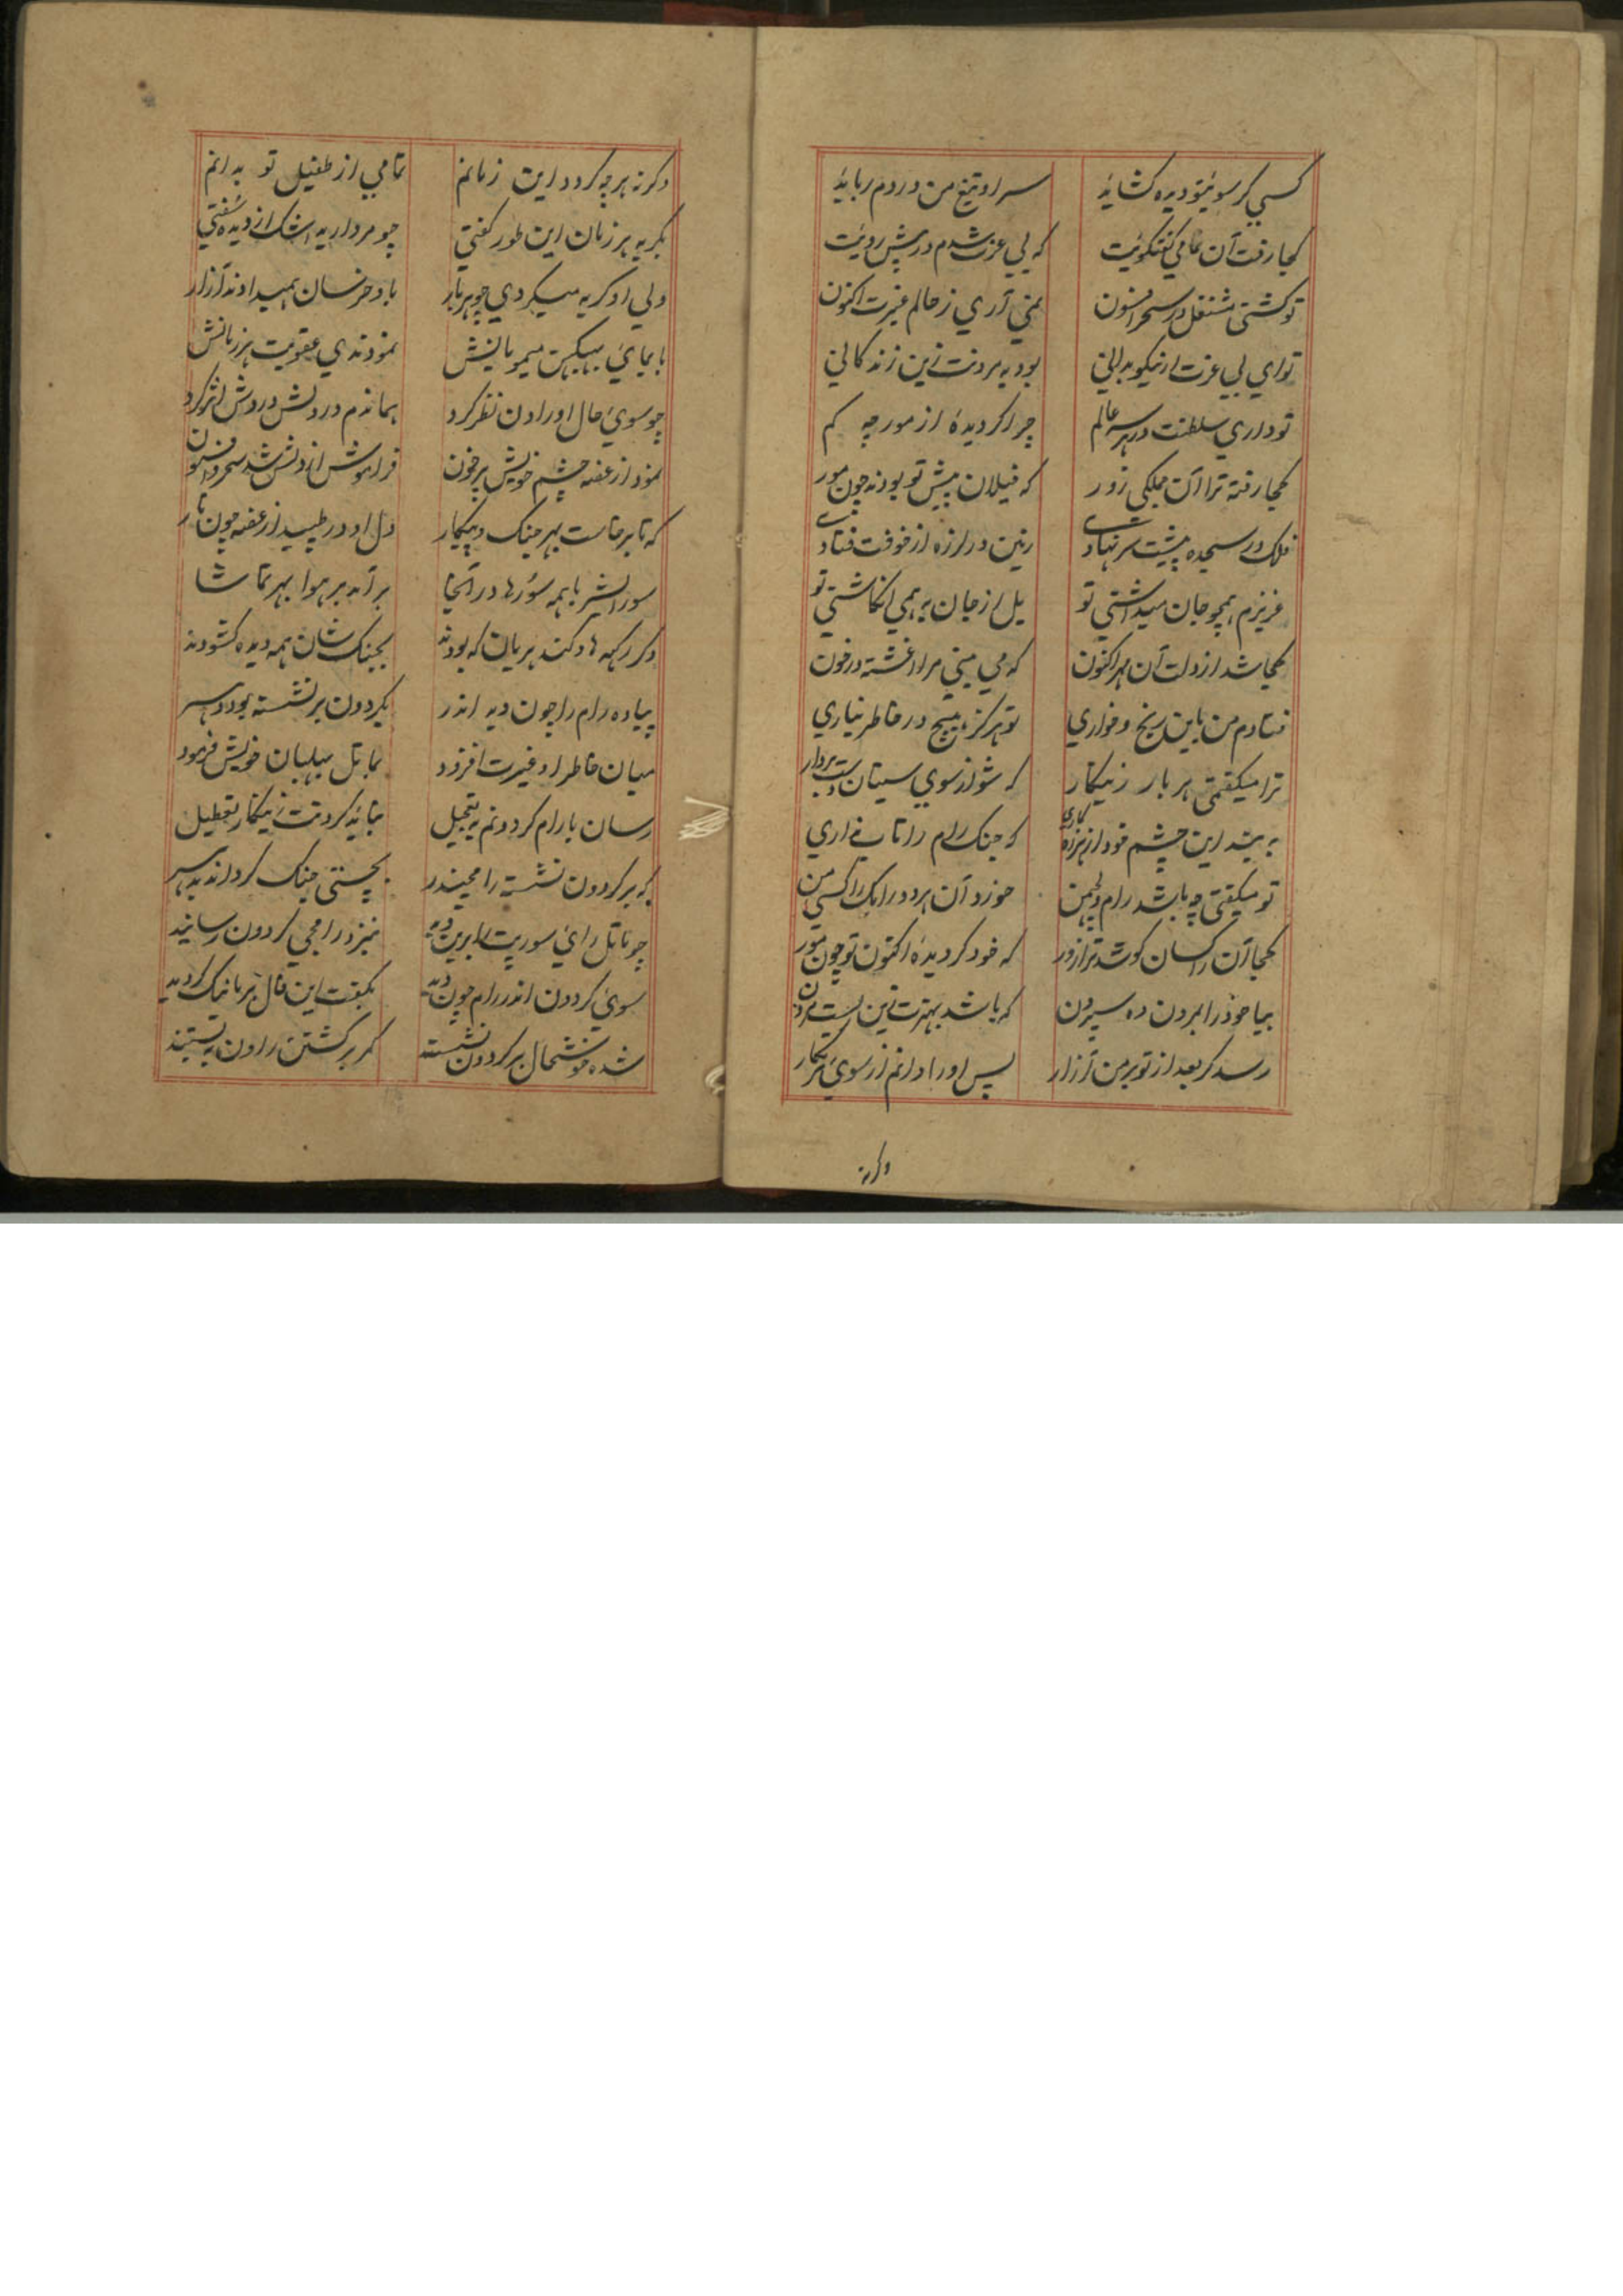 کسی کر سویتو دیده کشاید سر او تیغ من در دم رباید
کجا رفت آن تمامی گفتگویت که بی عزت شدم در پیش رویت
تو گشتی مشتغل در سحر افسون نمی آری ز حالم غیرت اکنون
تو ای بی عزت از نیکو بدانی بود به مردنت زین زندگانی
تو داری سلطنت در هر سه عالم چرا گردیدهٔ از مورچه کم
کجا رفته ترا آن جملگی زور که فیلان پیش تو بودند چون مور
فلک در سجده پیشت سر نهادی زمین در لرزه از خوفت فتادی
عزیزم همچو جان میداشتی تو بل از جان به همی انکاشتی تو
کجا شد از دلت آن مهر اکنون که می بینی مرا اغشته در خون
فتادم من باین رنج و خواری تو هرگز هیچ در خاطر نیاری
ترا میگفتمی هر بار زینکار که شو از سوی سیتان دست بردار
به بیند این چشم خود از هرزه کاری که جنگ رام را تاب نداری
تو میگفتی چه باشد رام و لچمن خورد آن هر دو را یک راکس من
کجا آن راکسان کو شد ترا زور که خود گردیدهٔ اکنون تو چون مور
بیا خود را بمردن ده سپردن که باشد بهترت زین زیست مردن
رسد کر بعد از تو بر من آزار پس او را دانم از سوی تو هر کار
وگرنه
وگرنه هر چه کردد این زمانم تمامی از طفیل تو بدانم
بگریه هر زمان این طور گفتی چو مروارید اشک از دیده سفتی
ولی او گریه میکردی چو هر بار باو خرسان همیدادند آزار
بایمای بهبیکهن میمویانش نمودندی عقوبت هر زمانش
چو سوی حال او راون نظر کرد هماندم در دلش دردش اثر کرد
نمود از غصه چشم خویش پرخون فراموش از دلش شد سحر و افسون
که تا برخاست بهر جنگ و پیکار دل او در طپید از غصه چون مار
سورایشر با همه سورها در آنجا برآمد بر هوا بهر تماشا
دگر رکهه ها و گندهربان که بودند بجنگ شان همه دیده کشودند
پیاده رام را چون دید اندر بگردون بر نشسته بود دهسر
میان خاطر او غیرت افزود بماتل بیلبان خویش فرمود
رسان با رام گردونم بتعجیل نباید کردنت زینکار تعطیل
که بر گردون نشسته رامچندر بچستی جنگ گرداند بدهسر
چو ماتل رای سورپت را برین دید نیزد رامجی گردون رسانید
سوی گردون اندر رام چون دید بگفت این فال بر ما نیک گردید
شده خوشحال بر گردون نشسته کمر بر کشتن راون به بستند